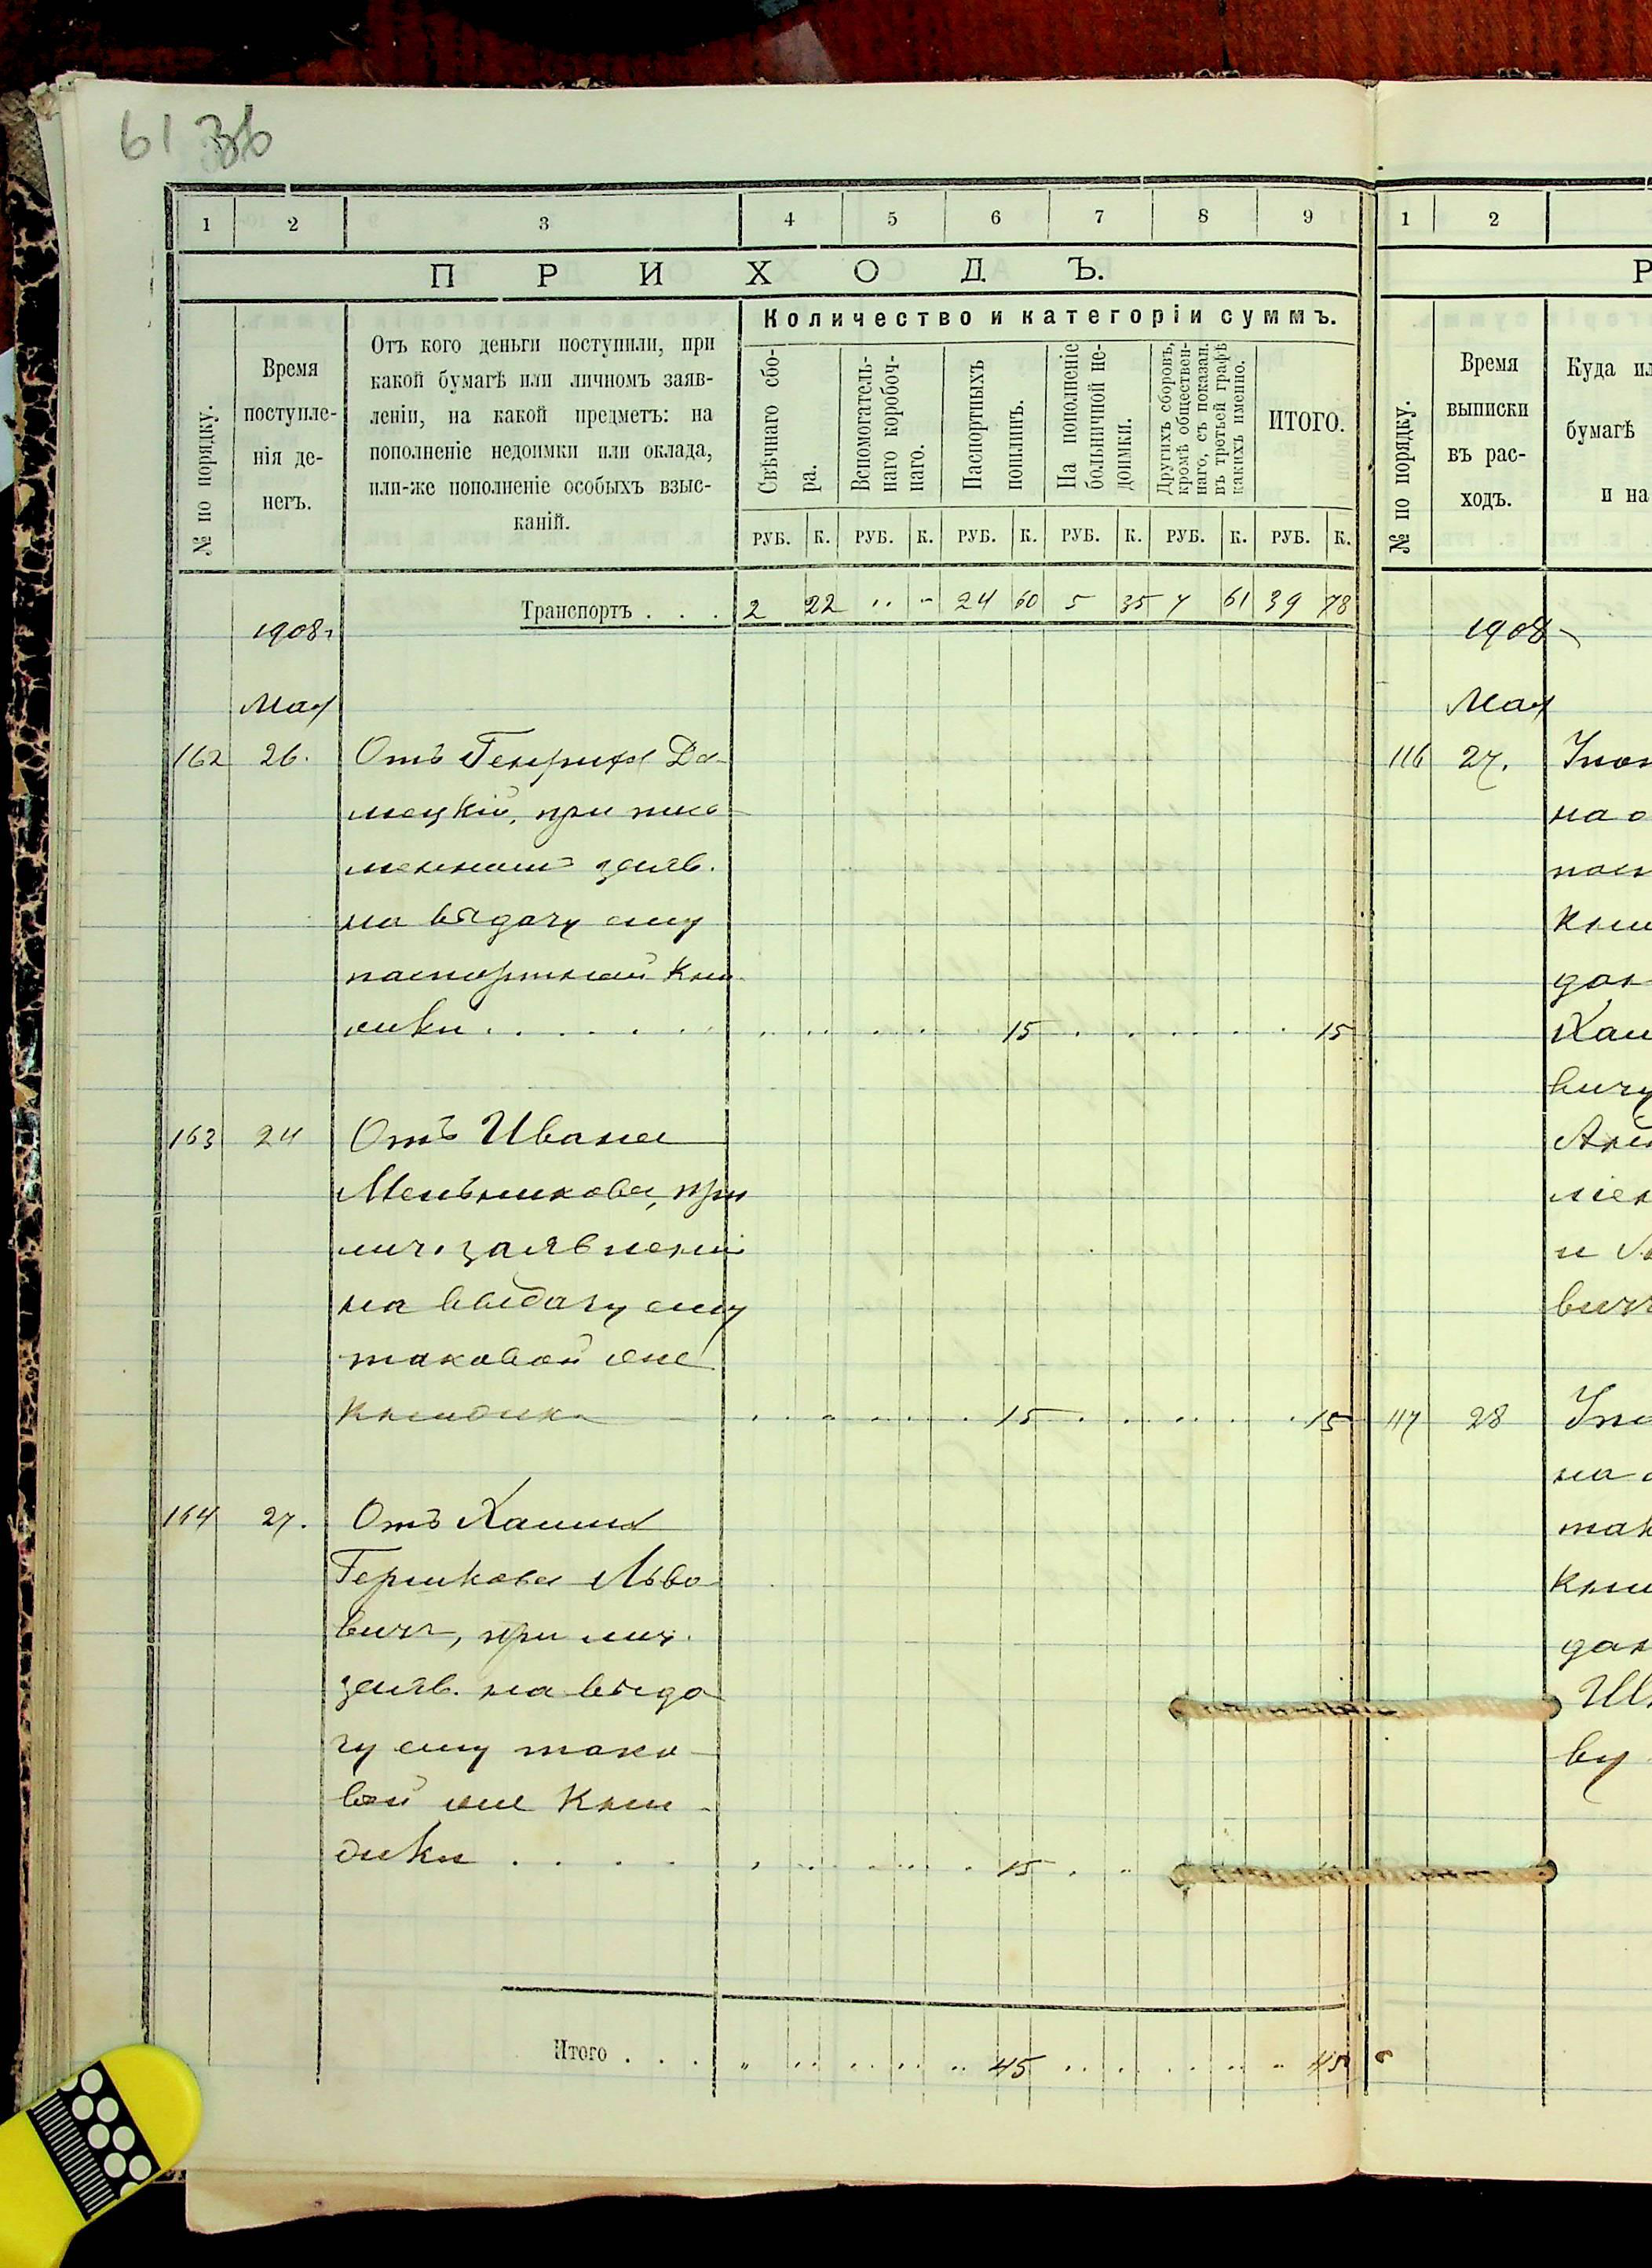 61 36
1 2 3 4 5 6 7 8 9
ПРИХОДЪ.
№ по порядку.
Время
поступле-
нія де-
негъ.
Отъ кого деньги поступили, при
какой бумагѣ или личномъ заяв-
леніи, на какой предметъ: на
пополненіе недоимки или оклада,
или-же пополненіе особыхъ взыс-
каній.
Количество и категоріи суммъ.
Свѣчнаго сбо-
ра.
Вспомогатель-
наго коробоч-
наго.
Паспортныхъ
пошлинъ.
На пополненіе
больничной не-
доимки.
Другихъ сборовъ,
кромѣ обществен-
наго, съ показан.
въ третьей графѣ
какихъ именно.
ИТОГО.
РУБ. К. РУБ. К. РУБ. К. РУБ. К. РУБ. К. РУБ. К.
Транспортъ . . . 2 22 " " 24 60 5 35 7 61 39 78
1908 г
Мая
162 26. Отъ Генриха До-
мецкій, при
заяв.
на выдачу ему
паспортной кни-
жки . . . . . . 15 . . . . . 15
163 24 Отъ Ивана
Мельникова, при
лич. заявленіи
на выдачу ему
таковой же
книжки 15 . . . . . 15
164 27. Отъ Хаима
Гершкова Льво-
вичъ, при лич.
заяв. на выда-
чу ему тако-
вой же кни-
жки . . . . 15
Итого . . . " 45 45
1 2
Р
№ по порядку.
Время
выписки
въ рас-
ходъ.
Куда ил
бумагѣ
и на
1908
Мая
116 27.
на о
кни
Хаи
вичу
и
вич
117 28
на
так
кни
ву